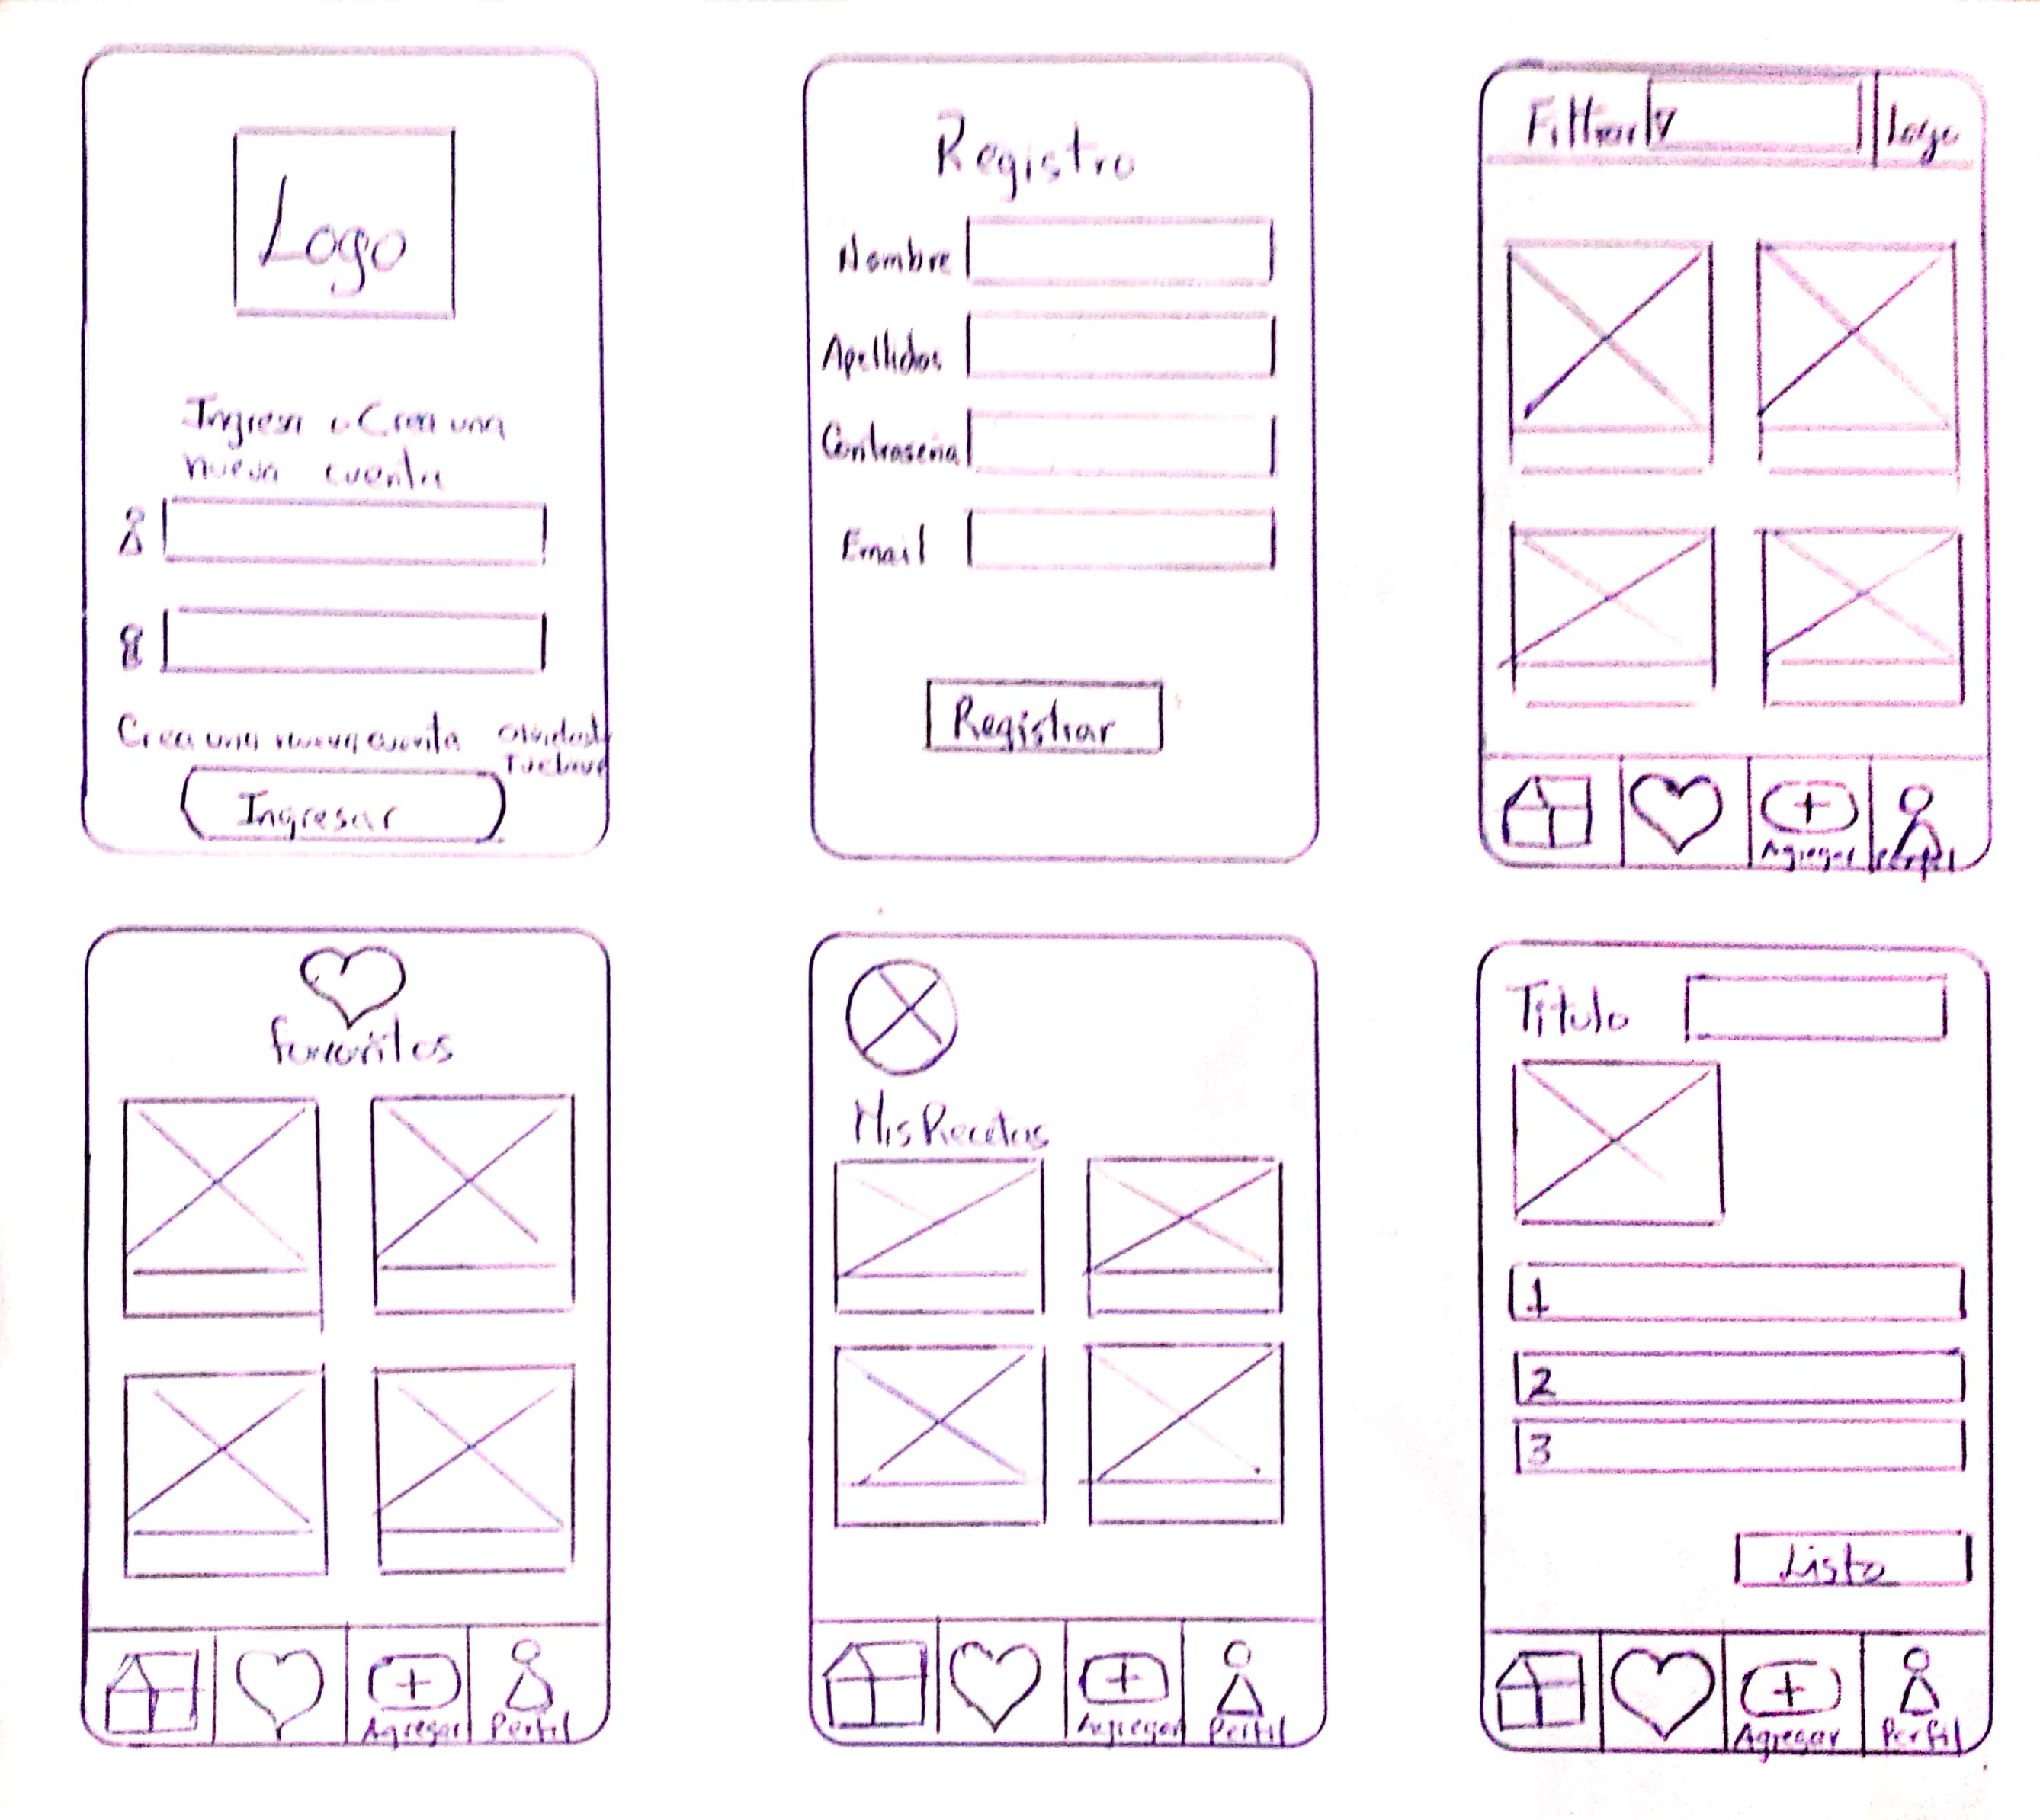 Logo
Ingresa o Crea una
nueva cuenta
Crea una nueva cuenta
Olvidaste
Tu clave
Ingresar
Registro
Nombre
Apellidos
Contraseña
Email
Registrar
Filtrar
Logo
Agregar
Perfil
favoritos
Agregar
Perfil
Mis Recetas
Agregar
Perfil
Titulo
1
2
3
Listo
Agregar
Perfil